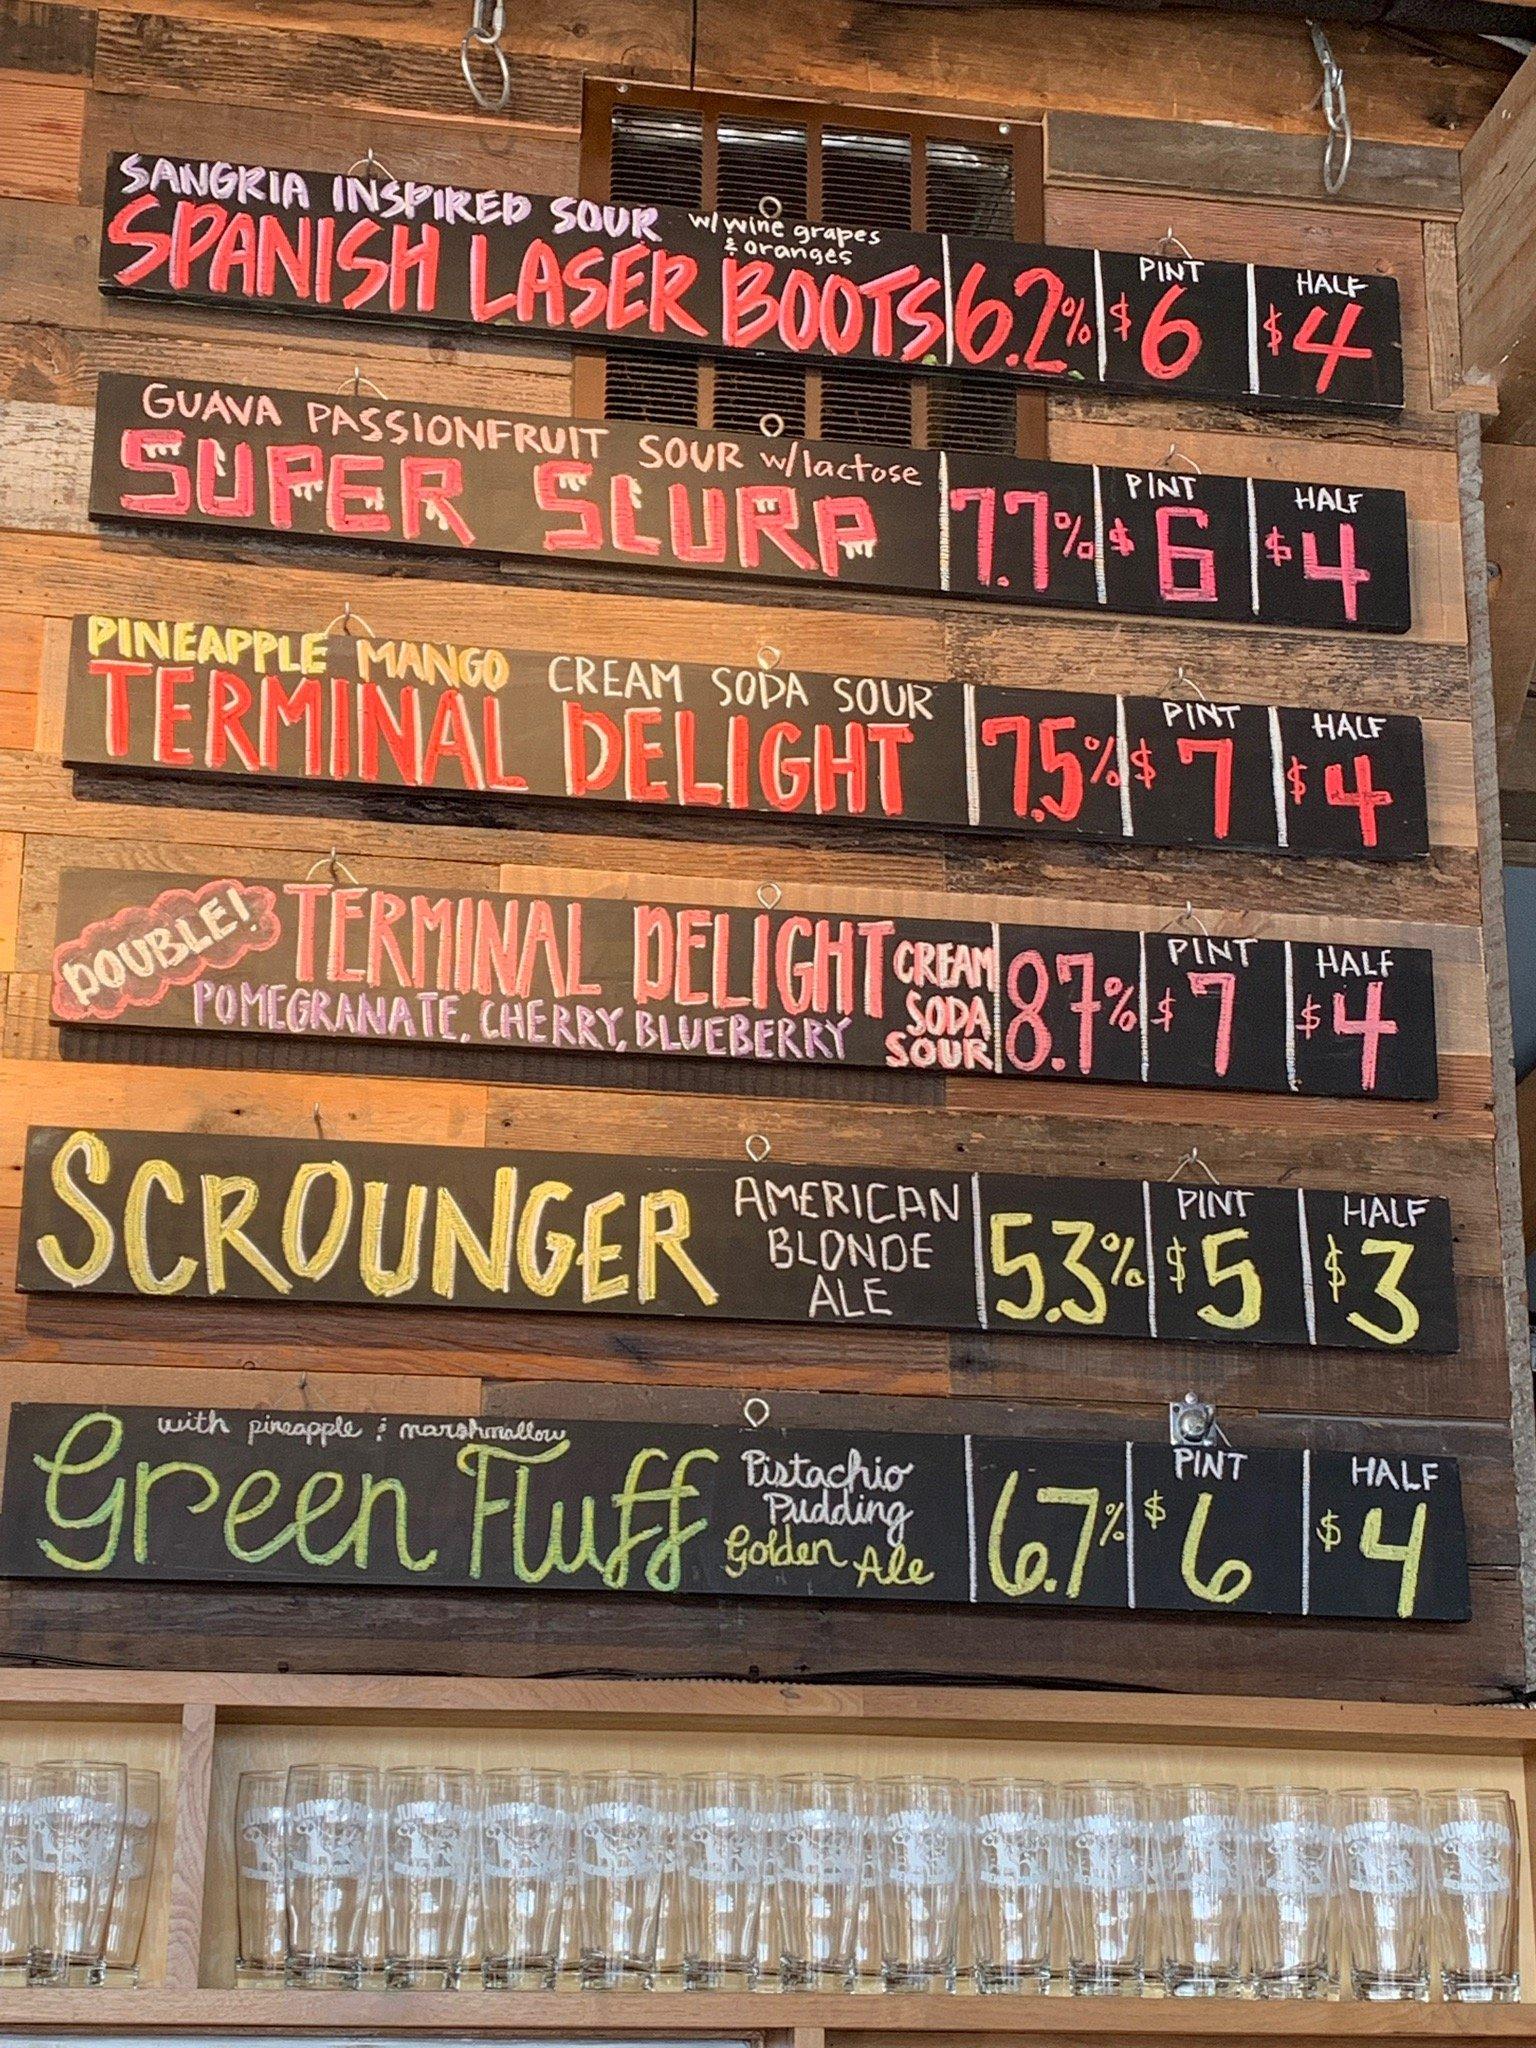 SANGRIA INSPIRED SOUR w/ wine grapes & oranges
SPANISH LASER BOOTS 6.2% PINT $6 HALF $4
GUAVA PASSIONFRUIT SOUR w/lactose
SUPER SLURP 7.7% PINT $6 HALF $4
PINEAPPLE MANGO CREAM SODA SOUR
TERMINAL DELIGHT 7.5% PINT $7 HALF $4
DOUBLE! TERMINAL DELIGHT CREAM SODA SOUR 8.7% PINT $7 HALF $4
POMEGRANATE, CHERRY, BLUEBERRY
SCROUNGER AMERICAN BLONDE ALE 5.3% PINT $5 HALF $3
with pineapple & marshmallow
Green Fluff Pistachio Pudding Golden Ale 6.7% PINT $6 HALF $4
JUNKYARD